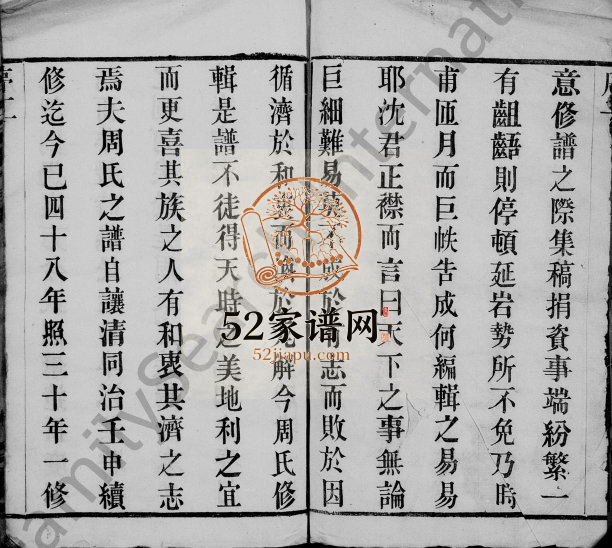 意修譜之際集稿捐資事端紛繁一
有齟齬則停頓延宕勢所不免乃時
甫匝月而巨帙告成何編輯之易易
耶沈君正襟而言曰天下之事無論
巨細難易莫成於志而敗於因
循濟於和衷而於解今周氏修
輯是譜不徒得天時之美地利之宜
而更喜其族之人有和衷共濟之志
焉夫周氏之譜自讓清同治壬申續
修迄今已四十八年照三十年一修
52家谱网
52jiapu.com
FamilySearch Internat